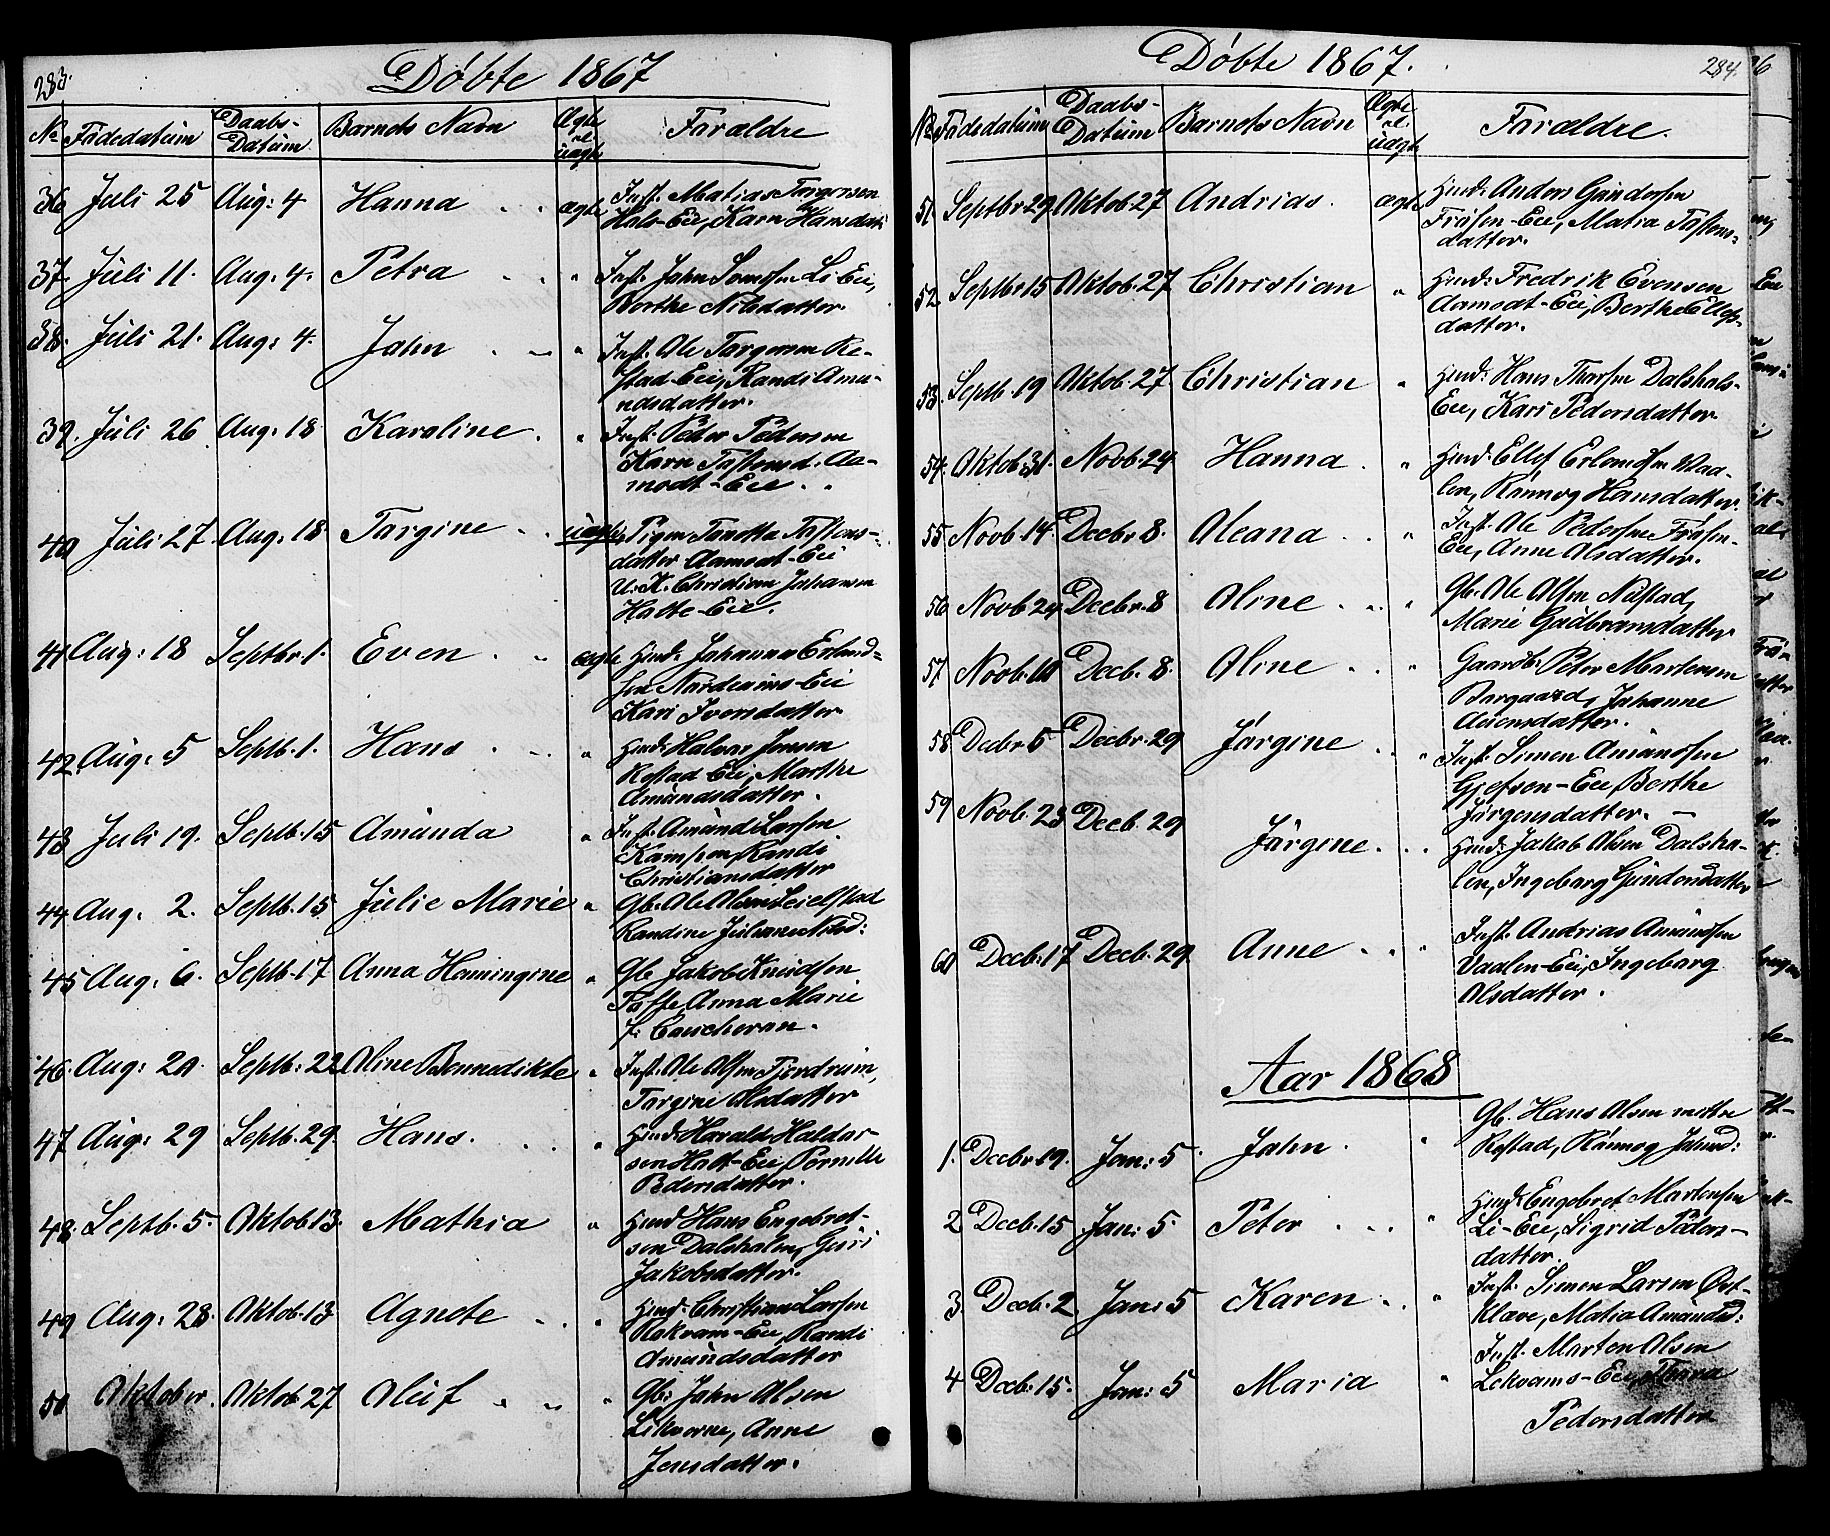 283.
Döbte 1867
No Födedatum Daabs-Datum Barnets Navn Ægte el. uægte Forældre
36 Juli 25 Aug: 4 Hanna ægte Inst. Matias Torgersen
Hols-Eie, Karn Hansdatt
37. Juli 11. Aug. 4. Petra " Inst. John Li-Eie,
Berthe Nilsdatter
38. Juli 21. Aug: 4. John " Inst. Ole Torgersen Ro-
stad-Eie, Randi Amu-
ndsdatter.
39. Juli 26 Aug: 18 Karoline " Inst. Peder Pedersen
Karn Tostensd. Aa-
modt-Eie
40 Juli 27. Aug: 18 Torgine uægte Pigen Tostens-
datter Aamodt-Eie
U. K. Christian Johansen
Holte-Eie.
41 Aug: 18 Septbr. 1. Even ægte Hmd: Johannes Erlend-
sen Eie
Kari Iversdatter
42. Aug: 5 Septb. 1. Hans " Hmd: Halvor Jensen
Rostad Eie, Marthe
Amundsdatter.
43 Juli 19. Septb. 15 Amunda " Inst. Amund Larsen
Kampen, Randi
Christiansdatter
44 Aug. 2. Septb. 15 Julie Marie " Gb. Ole
Randine Juliane
45 Aug. 6. Septb. 17 Anna Hemingine " Gb Jakob Knudsen
Anna Marie
f. Caucheron.
46. Aug: 20. Septb: 22 Oline Bennedikte " Inst. Ole Olsen Tjerdrum,
Torgine Olsdatter
47 Aug: 29 Septb. 29. Hans. " Hmd: Harald Haldor-
sen Holt-Eie, Pernille
Pedersdatter.
48. Septb. 5. Oktob. 13. Mathia " Hmd: Hans Engebret-
sen Dalshalen, Guri
Jakobsdatter.
49 Aug: 28. Oktob. 13. Agnete " Hmd: Christian Larsen
Rokvam-Eie, Randi
Amundsdatter
50 Oktober. Oktob. 27 Oluf " Gb: John Olsen
Anne
Jensdatter.
Döbte 1867.
284.
No Födedatum Daabs-Datum Barnets Navn Ægte el. uægte Forældre.
51 Septbr. 29. Oktob. 27 Andrias. ægte Hmd: Anders Gundersen
Frösen-Eie, Matia Tostens-
datter.
52. Septbr. 15 Oktob. 27 Christian " Hmd: Fredrik Evensen
Aamodt-Eie, Berthe Ellefs-
datter.
53. Septb. 19 Oktob. 27 Christian " Hmd: Hans Thorsen Dalshals-
Eie, Kari Pedersdatter
54. Oktob. 31. Novb. 24 Hanna. " Hmd: Ellef Erlendsen Vaa-
len, Rönnog Hansdatter.
55. Novb. 14. Decbr. 8. Oleana " Inst. Ole Pedersen Frösen-
Eie, Anne Olsdatter.
56 Novb. 24. Decbr. 8 Oline " Gb. Ole Olsen Nustad,
Marie Gudbrandsdatter
57. Novb. 10 Decb. 8. Oline " Gaardb: Peter Martensen
Borgaard, Johanne
Auensdatter.
58 Decbr. 6 Decbr. 29 Jörgine " Inst. Simen Amundsen
Gjefsen-Eie Berthe
Jörgensdatter.
59 Novb. 23 Decb. 29 Jörgine " Hmd: Jakob Olsen Dalsha-
len, Ingeborg Gundersdatter
60 Decb. 17 Decb. 29 Anne " Inst. Andrias Amundsen
Vaalen-Eie, Ingeborg
Olsdatter.
Aar 1868
1. Decbr. 19. Jan: 5. John. " Gb. Hans Olsen nedre
Rostad, Rönnog
2 Decb. 15 Jan: 5. Peter " Hmd: Engebret Martensen
Li-Eie, Sigrid Peders-
datter.
3 Decb. 2 Jan: 5 Karen " Inst. Simen Larsen Øst-
Klave, Matia Amundsd:
4 Decb. 15. Jan: 5 Maria " Inst. Marten Olsen
Lekvams-Eie, Thrina
Pedersdatter